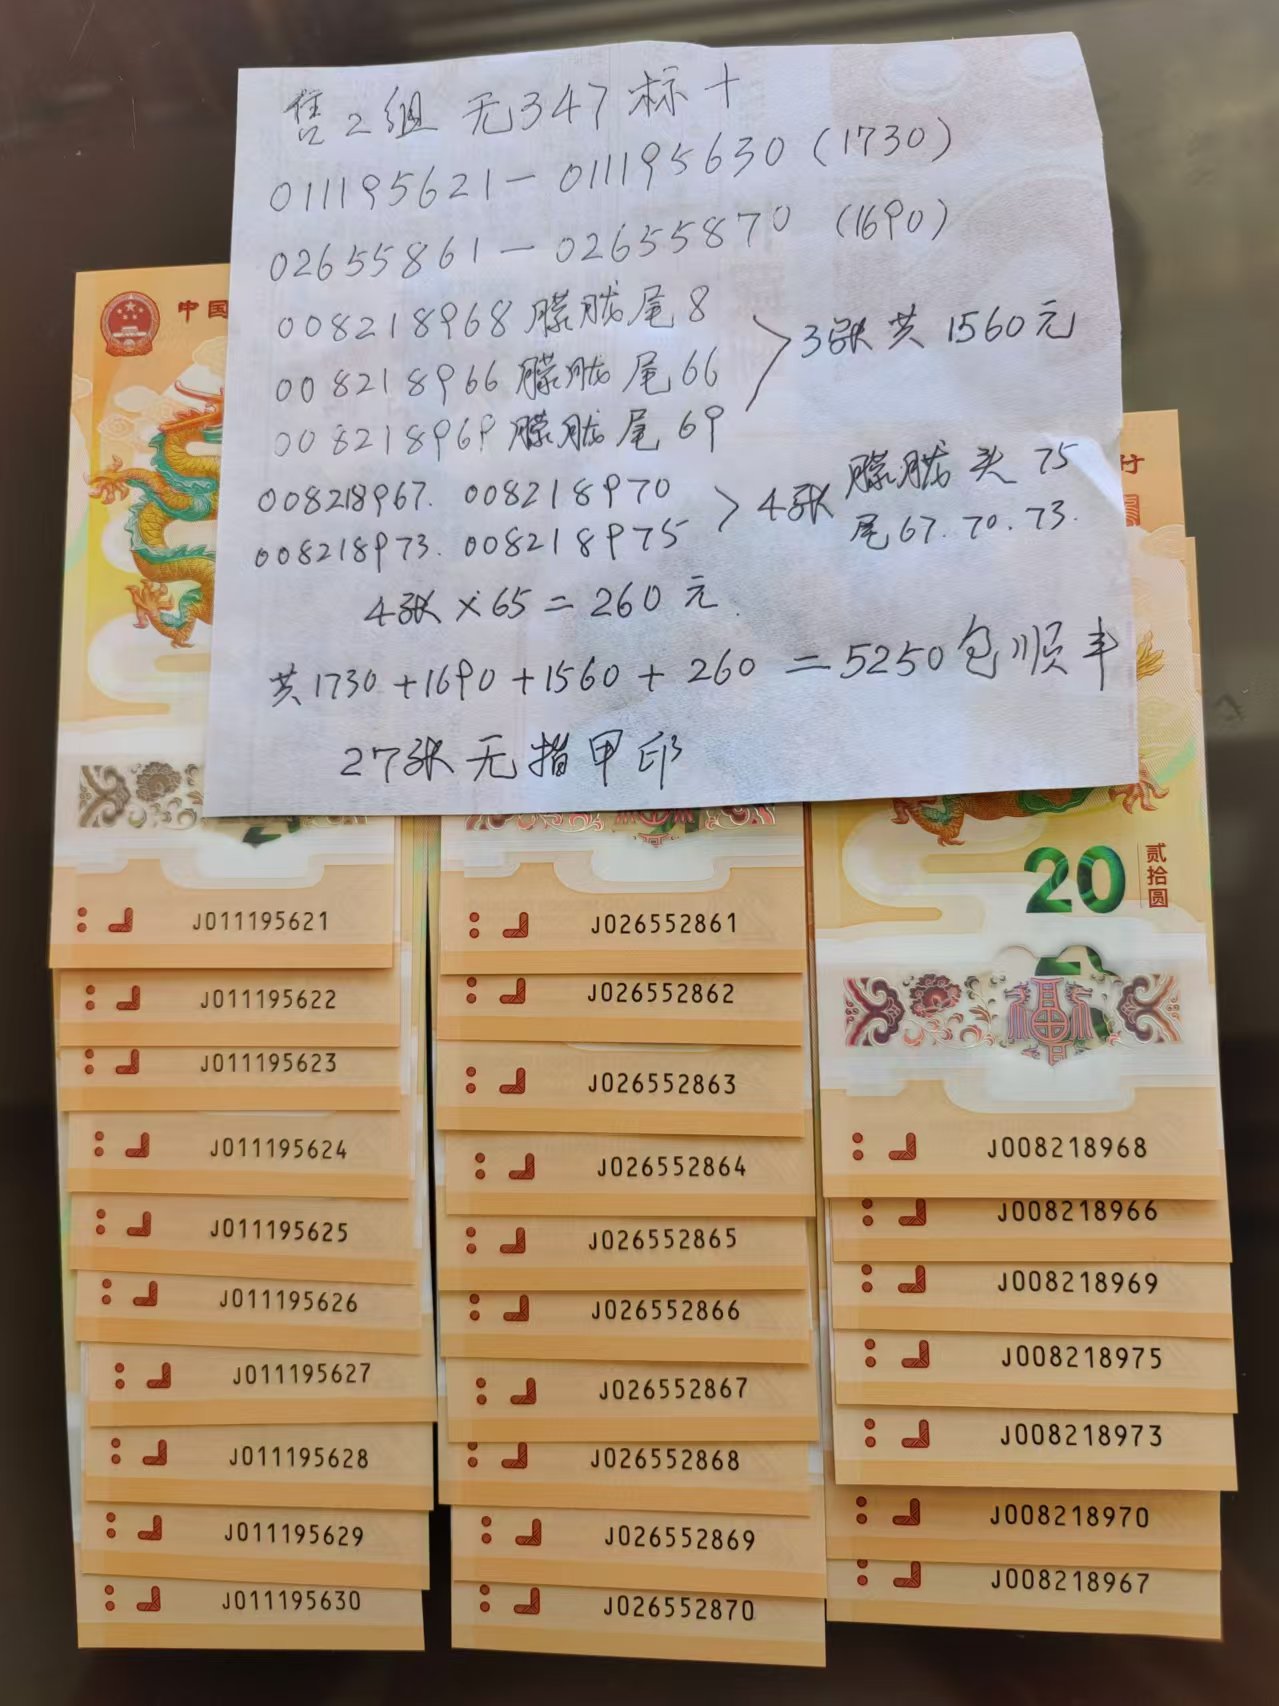 售2组 无347标十
011195621－011195630（1730）
02655861－02655870（1690）
008218968朦胧尾8
008218966朦胧尾66
008218969朦胧尾69
>3张共1560元
008218967. 008218970
008218973. 008218975
>4张朦胧头75
尾67.70.73.
4张×65=260元.
共1730+1690+1560+260=5250包顺丰
27张无指甲印
中国
行
20
贰拾圆
J011195621
J011195622
J011195623
J011195624
J011195625
J011195626
J011195627
J011195628
J011195629
J011195630
J026552861
J026552862
J026552863
J026552864
J026552865
J026552866
J026552867
J026552868
J026552869
J026552870
J008218968
J008218966
J008218969
J008218975
J008218973
J008218970
J008218967